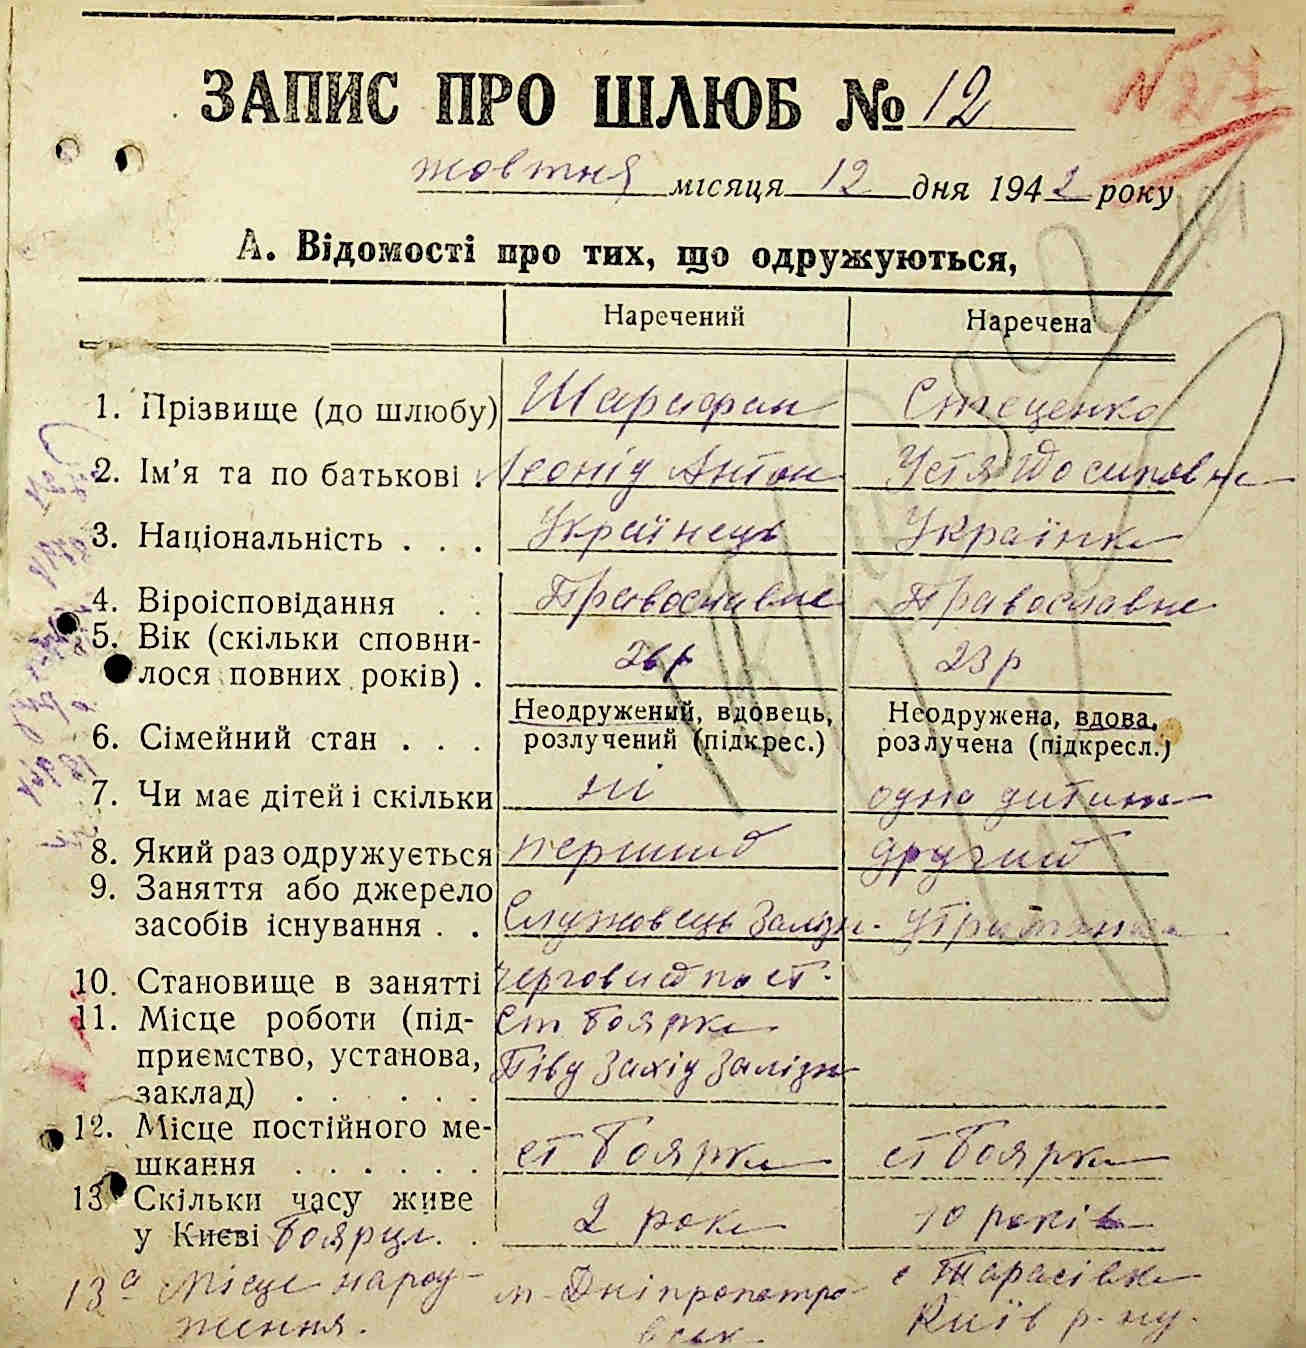 N 27
ЗАПИС ПРО ШЛЮБ № 12
жовтня місяця 12 дня 1942 року
А. Відомості про тих, що одружуються,
Наречений Наречена
1. Прізвище (до шлюбу) Шарифан Стеценко
2. Ім'я та по батькові . Леонід Антон Устя Йосиповна
3. Національність . . . Українець Українка
4. Віроісповідання . . Православне Православне
5. Вік (скільки сповни-
лося повних років) . 26 р 23 р
Неодружений, вдовець, Неодружена, вдова,
6. Сімейний стан . . . розлучений (підкрес.) розлучена (підкресл.)
7. Чи має дітей і скільки ні одна дитина
8. Який раз одружується перший другий
9. Заняття або джерело
засобів існування . . Служовець Залізн. утриманка
10. Становище в занятті черговий по ст.
11. Місце роботи (під- Ст Боярка
приємство, установа, Півд Захід Залізн
заклад) . . . . . .
12. Місце постійного ме-
шкання . . . . . . ст Боярка ст Боярка
13. Скільки часу живе
у Києві Боярці. . 2 роки 10 років
13а Місце народ- м. Дніпропетро- с Тарасівка
ження. вськ Київ р-ну.